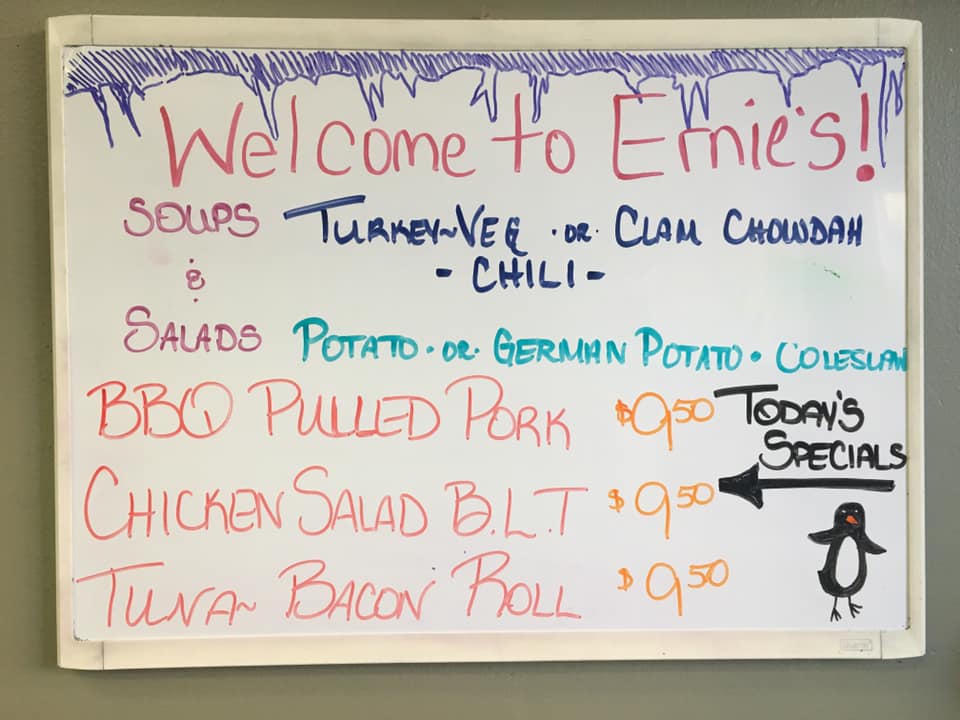 Welcome to Ernie's!
SOUPS TURKEY~VEG · OR · CLAM CHOWDAH
& - CHILI -
SALADS POTATO · OR · GERMAN POTATO · COLESLAW
BBQ PULLED PORK $9.50 TODAY'S
SPECIALS
CHICKEN SALAD B.L.T $9.50
TUNA~ BACON ROLL $9.50